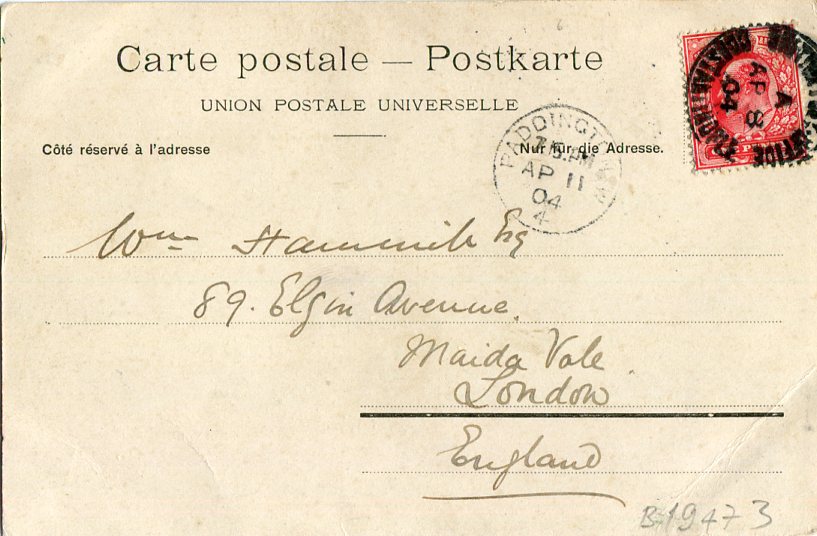 Carte postale — Postkarte
UNION POSTALE UNIVERSELLE
Côté réservé à l'adresse
Nur für die Adresse.
PADDINGTON W
7.15 PM
AP 11
04
4
A
AP 8
04
BRITISH POST OFFICE
Wm Hammick Esq
89. Elgin Avenue.
Maida Vale
London
England
B-19473